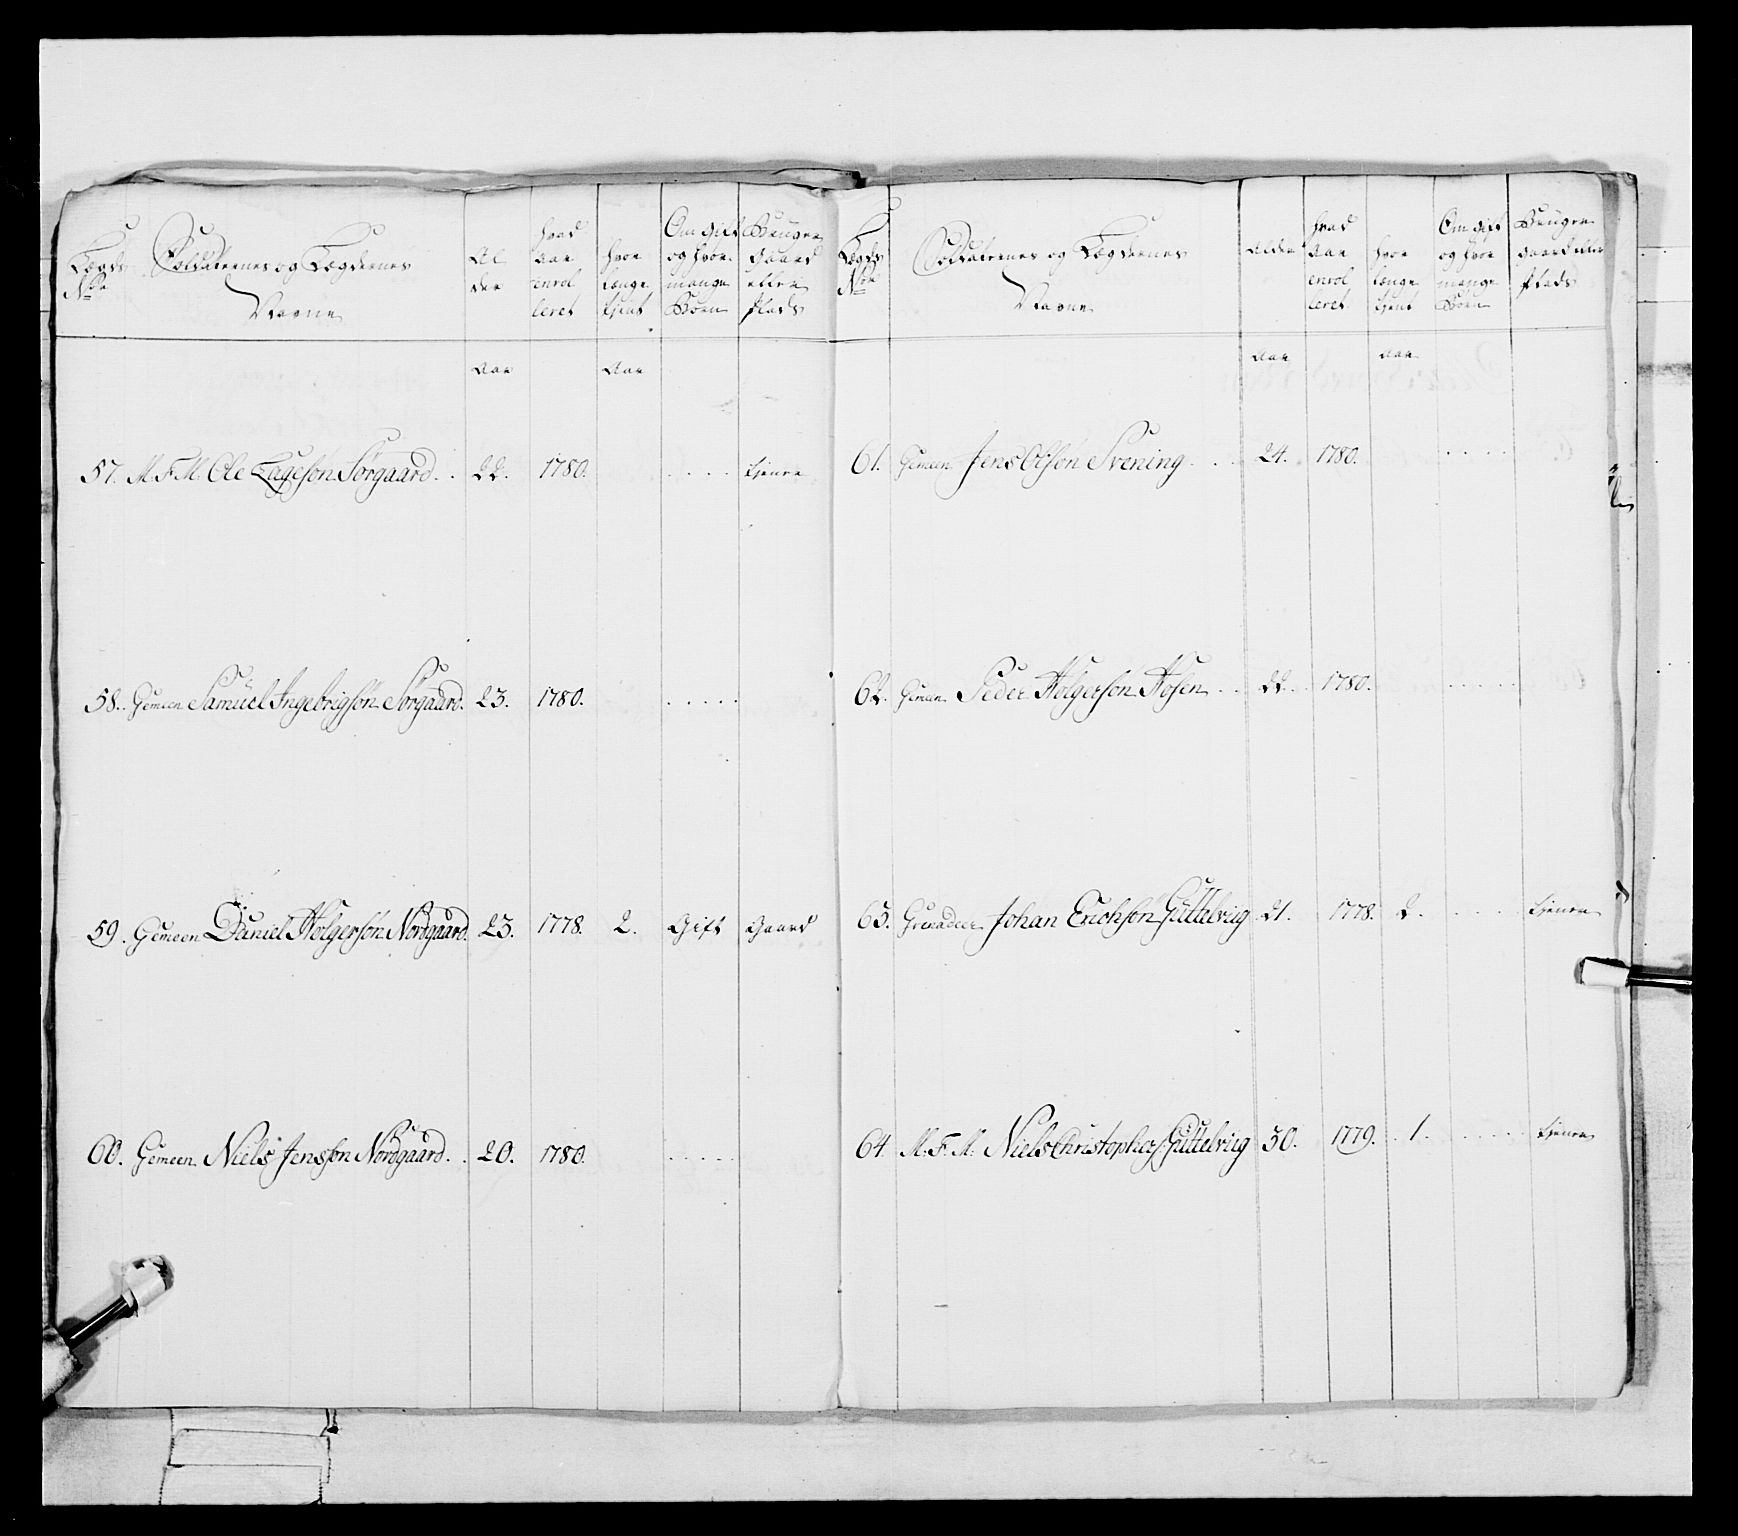 Lægds No
Soldaternes og Lægdernes Navne
Alder
hvad Aar enrolleret
hvor længe tient
Om gift og hvor mange Børn
Bruger Gaard eller Plads
Aar
Aar
57. M. F. M. Ole Tageson Sørgaard. . 22. 1780. . . . . tiener
58. Gemeen Samuel Ingebrigson Sørgaard. 23. 1780. . . . . .
59. Gemeen Daniel Holgerson Nordgaard. 23. 1778. 2. Gift Gaard
60. Gemeen Niels Jensson Nordgaard. . 20. 1780. . . . . .
Lægds No
Soldaternes og Lægdernes Navne
Alder
hvad Aar enrolleret
hvor længe tient
Om gift og hvor mange Børn
Bruger Gaard eller Plads
Aar
Aar
61. Gemeen Jens Olson Svening . . . 24. 1780. . . . .
62. Gemeen Peder Holgerson Hosen . . 22. . 1780. . . . . .
63. Grenadeer Johan Erichson Guttelvig 21. 1778. 2. . . . . tiener
64. M. F. M. Niels Christophers. Guttelvig 30. 1779. . 1. . . . . . tiener